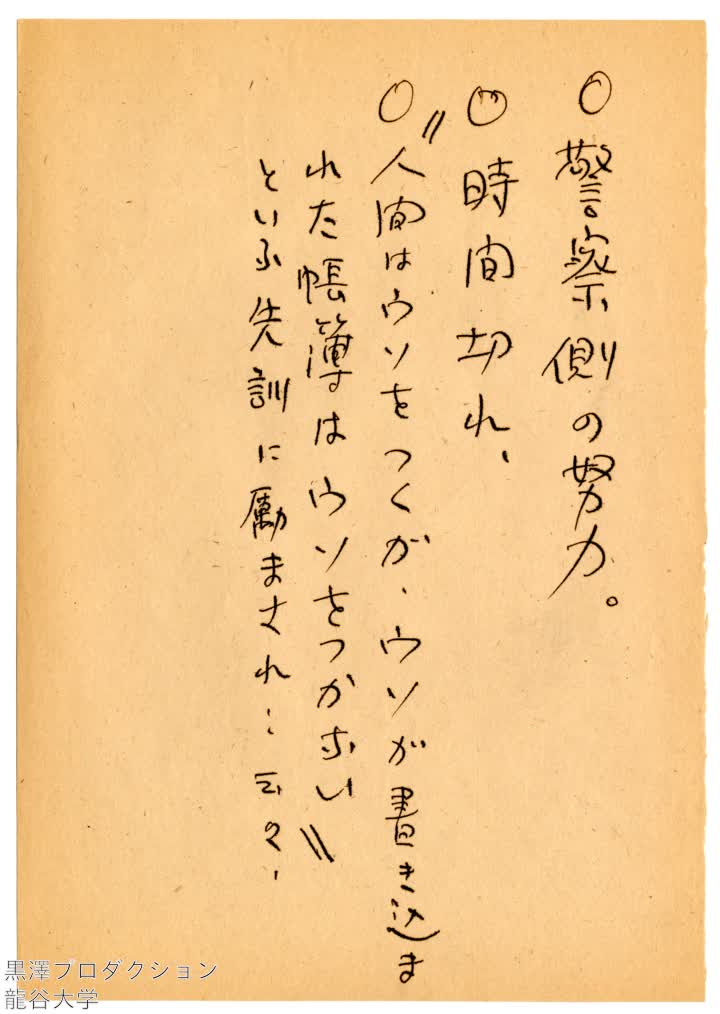 ○警察側の努力。
○時間切れ、
○〝人間はウソをつくが、ウソが書き込ま
れた帳簿はウソをつかない〟
といふ先訓に励まされ…云々、
黒澤プロダクション
龍谷大学